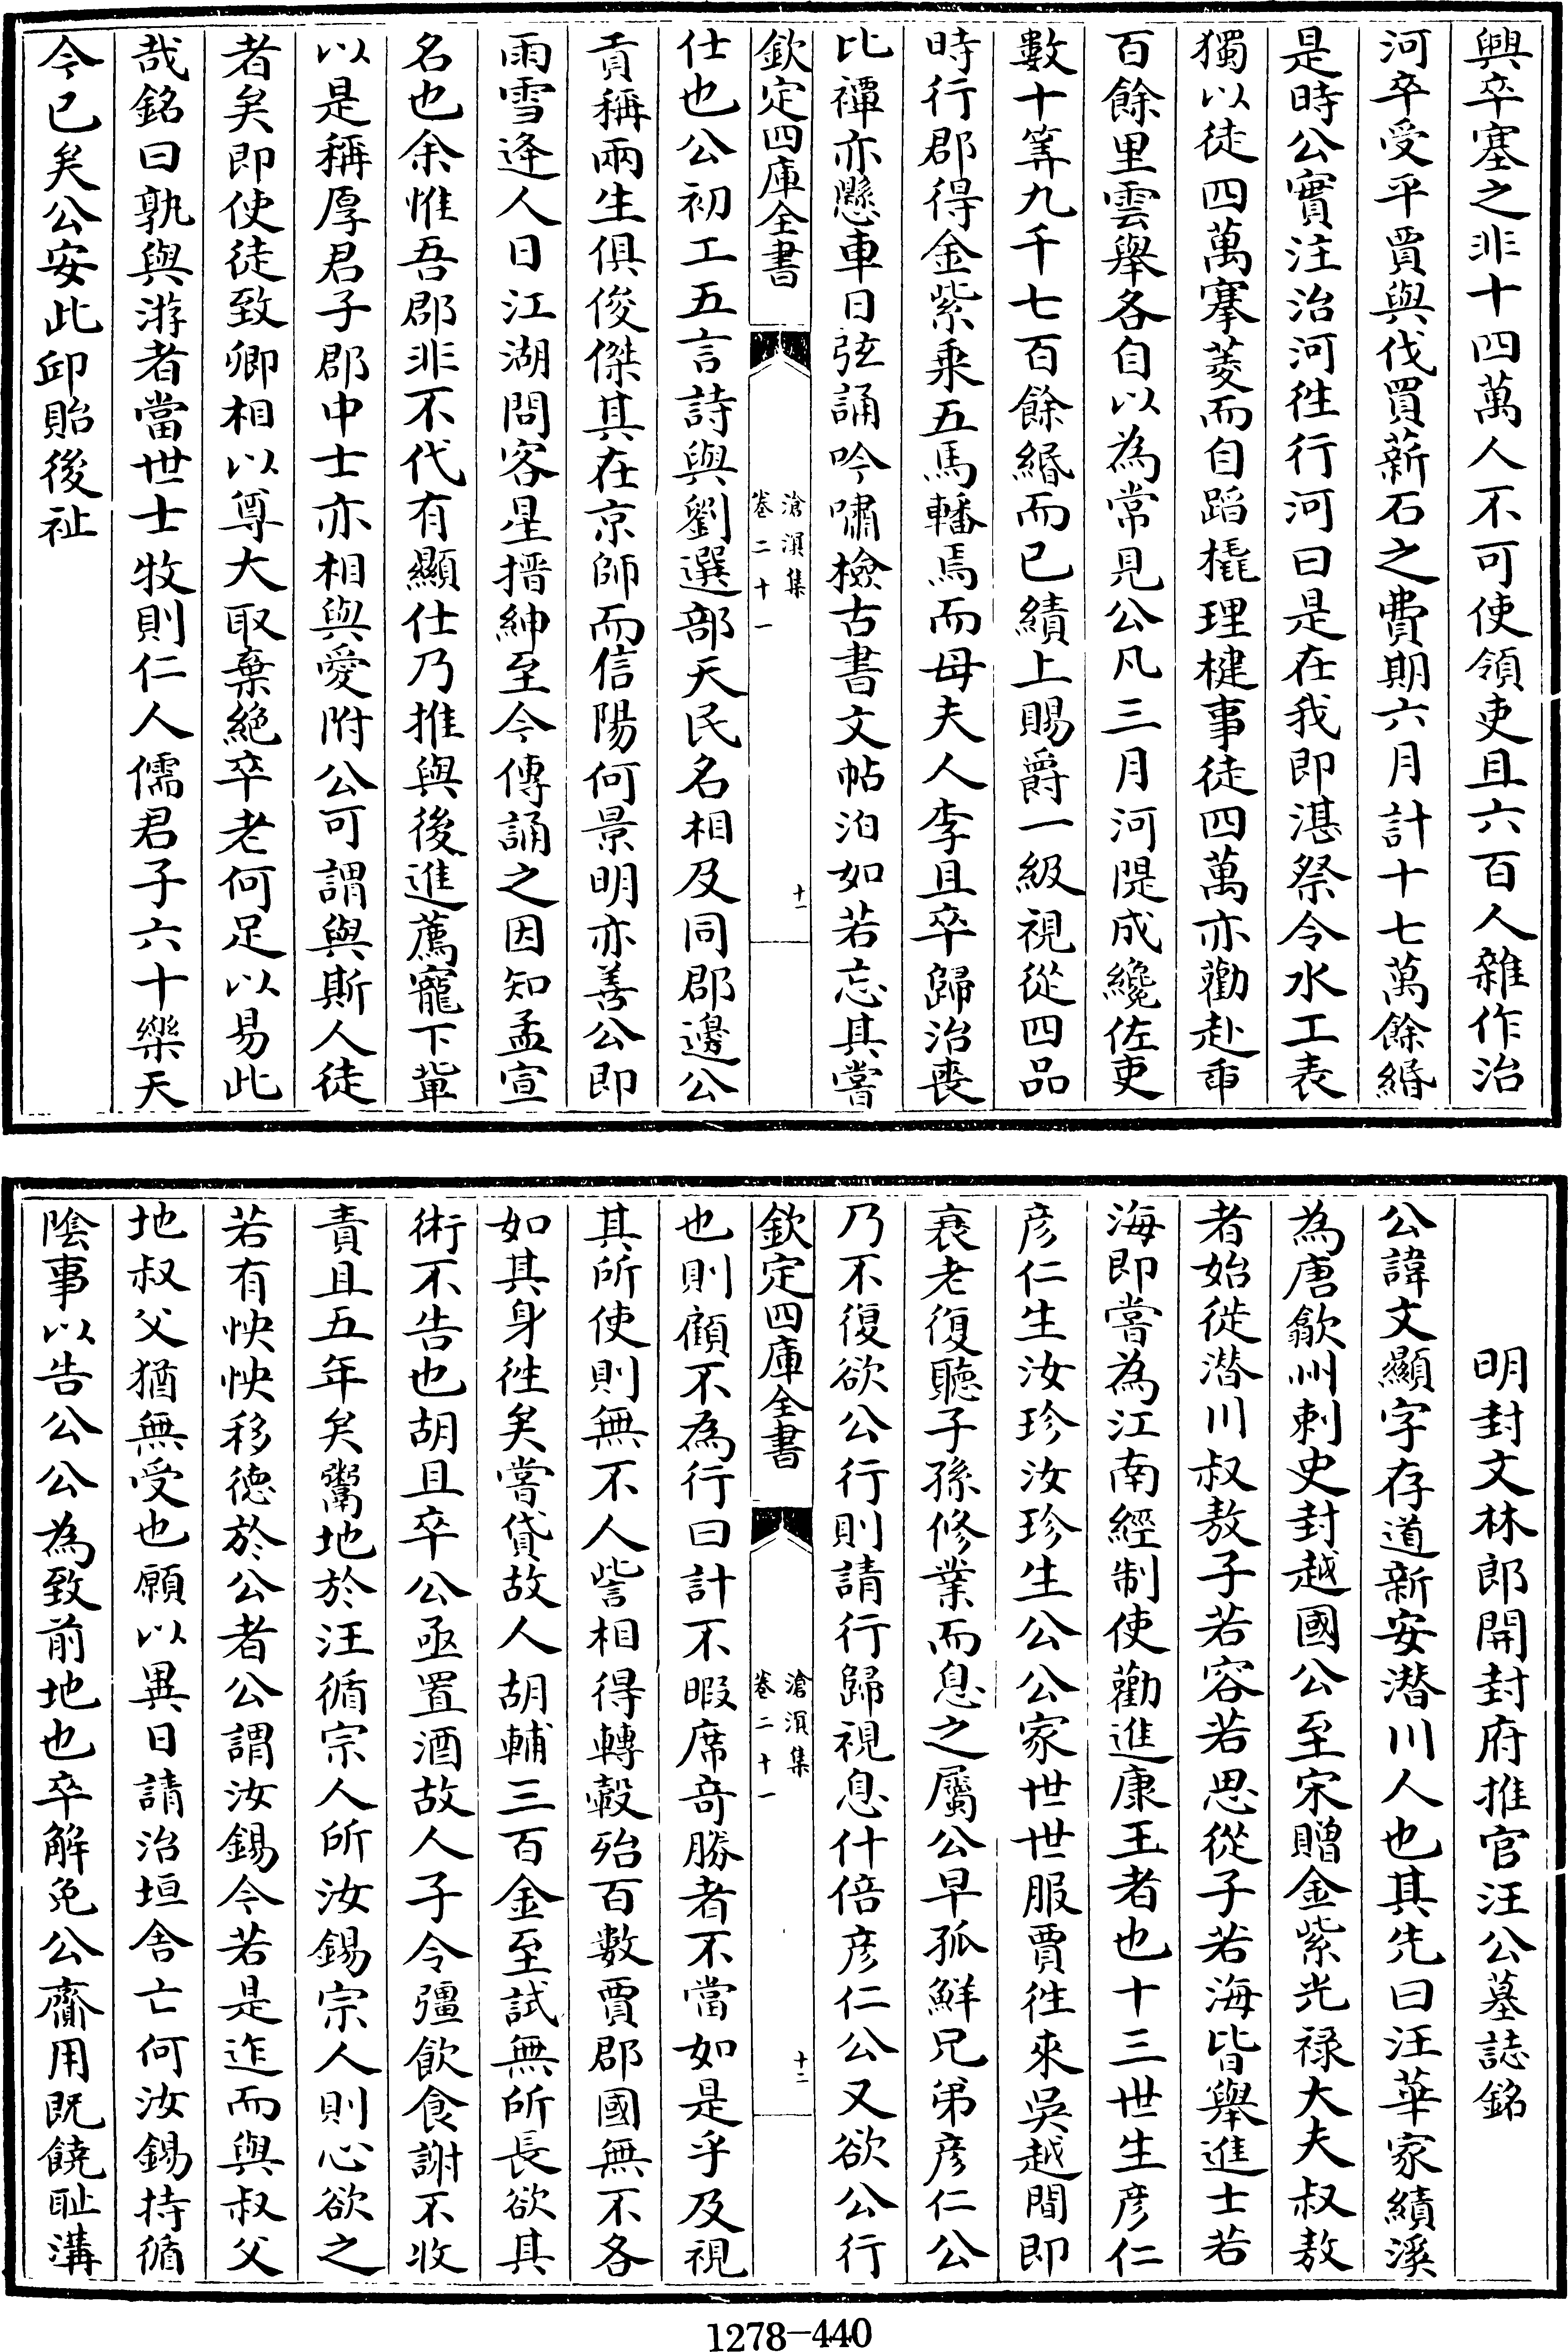 興卒塞之非十四萬人不可使領吏且六百人雜作治
河卒受平賈與伐買薪石之費期六月計十七萬餘緡
是時公實注治河徃行河曰是在我即湛祭令水工表
獨以徒四萬搴菱而自蹈橇理楗事徒四萬亦勸赴臿
百餘里雲舉各自以為常見公凡三月河隄成纔佐吏
數十筭九千七百餘緡而已績上賜爵一級視從四品
時行郡得金紫乘五馬轓焉而母夫人李且卒歸治喪
比禫亦懸車日弦誦吟嘯檢古書文帖泊如若忘其嘗
欽定四庫全書
滄溟集
卷二十一
十一
仕也公初工五言詩與劉選部天民名相及同郡邊公
貢稱兩生俱俊傑其在京師而信陽何景明亦善公即
雨雪逢人日江湖問客星搢紳至今傳誦之因知孟宣
名也余惟吾郡非不代有顯仕乃推與後進薦寵下輩
以是稱厚君子郡中士亦相與愛附公可謂與斯人徒
者矣即使徒致卿相以尊大取棄絕卒老何足以易此
哉銘曰孰與游者當世士牧則仁人儒君子六十樂天
今已矣公安此卹貽後祉
明封文林郎開封府推官汪公墓誌銘
公諱文顯字存道新安潛川人也其先曰汪華家績溪
為唐歙州刺史封越國公至宋贈金紫光祿大夫叔敖
者始徙潛川叔敖子若容若思從子若海皆舉進士若
海即嘗為江南經制使勸進康王者也十三世生彥仁
彥仁生汝珍汝珍生公公家世世服賈徃來吳越間即
衰老復聽子孫修業而息之屬公早孤鮮兄弟彥仁公
乃不復欲公行則請行歸視息什倍彥仁公又欲公行
欽定四庫全書
滄溟集
卷二十一
十二
也則顧不為行曰計不暇席奇勝者不當如是乎及視
其所使則無不人訾相得轉轂殆百數賈郡國無不各
如其身徃矣嘗貸故人胡輔三百金至試無所長欲其
術不告也胡且卒公亟置酒故人子令彊飲食謝不收
責且五年矣鬻地於汪循宗人所汝錫宗人則心欲之
若有怏怏移德於公者公謂汝錫令若是迮而與叔父
地叔父猶無受也願以異日請治垣舍亡何汝錫持循
陰事以告公公為致前地也卒解免公齎用既饒恥溝
1278-440